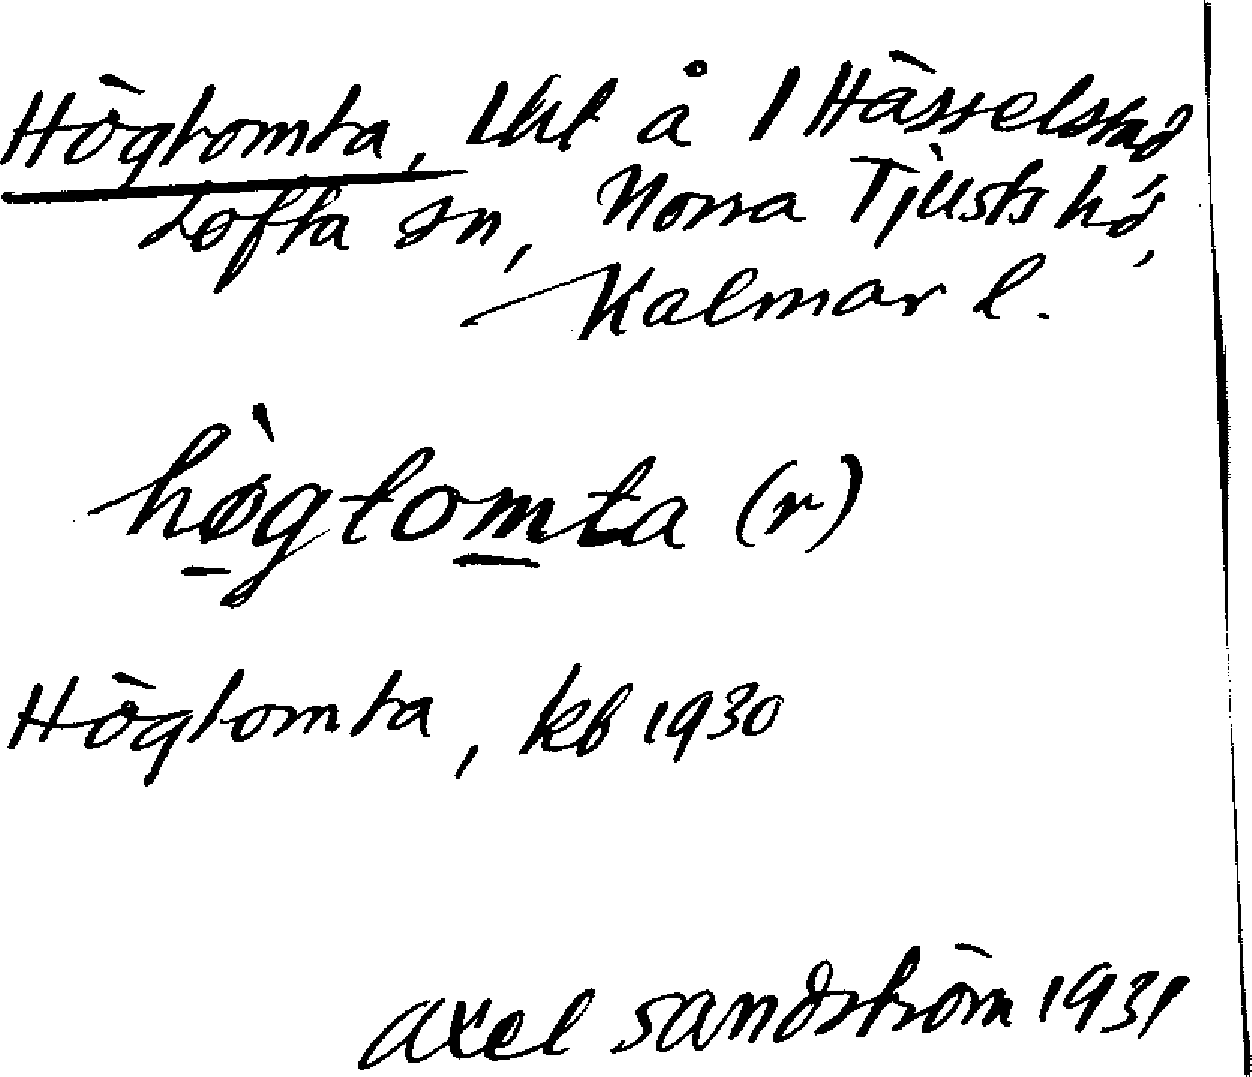 Högtomta, Lht å 1 Hässelstad
Lofta sn, Norra Tjusts hd,
Kalmar l.
hø̀gtomta (r)
Högtomta, kb 1930
Axel Sandström 1931